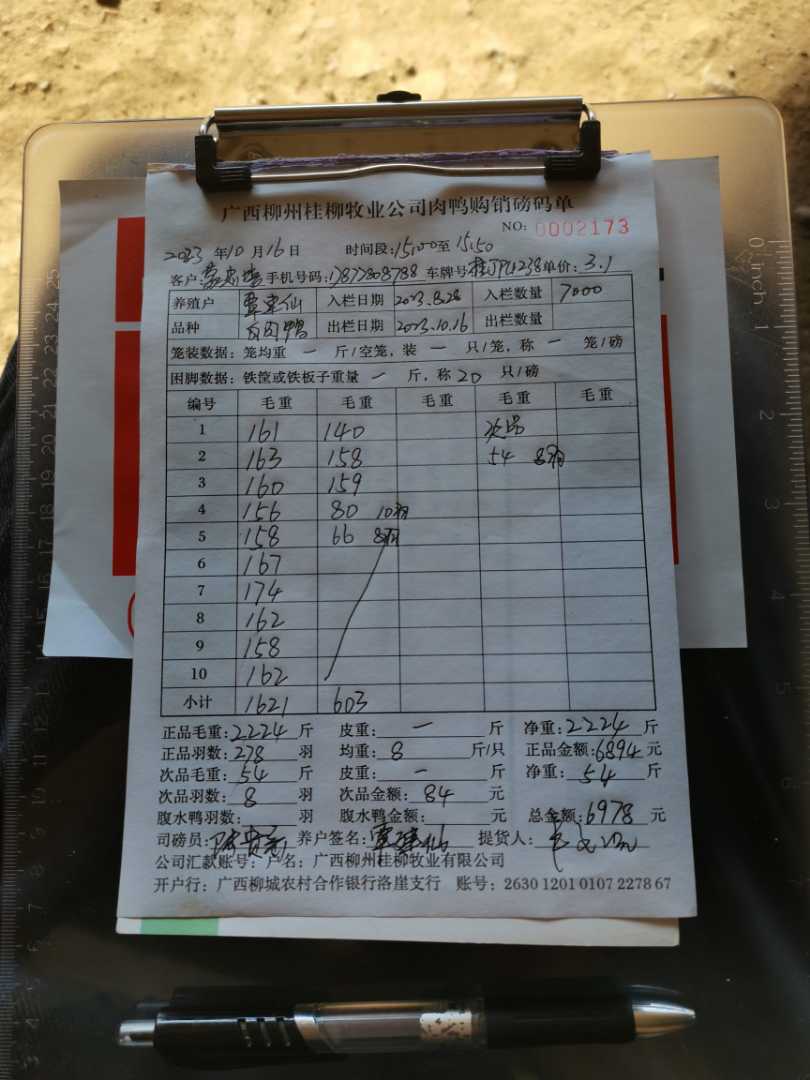 广西柳州桂柳牧业公司肉鸭购销磅码单
NO: 0002173
2023 年 10 月 16 日 时间段: 15:00 至 15:50
客户: 手机号码: 车牌号 单价: 3.1
养殖户 覃建仙 入栏日期 2023.8.28 入栏数量 7000
品种 白肉鸭 出栏日期 2023.10.16 出栏数量
笼装数据: 笼均重 一 斤/空笼, 装 一 只/笼, 称 一 笼/磅
困脚数据: 铁筐或铁板子重量 一 斤, 称 20 只/磅
编号 毛重 毛重 毛重 毛重 毛重
1 161 140 次品
2 163 158 54 8羽
3 160 159
4 156 80 10羽
5 158 66 8羽
6 167
7 174
8 162
9 158
10 162
小计 1621 603
正品毛重: 2224 斤 皮重: 一 斤 净重: 2224 斤
正品羽数: 278 羽 均重: 8 斤/只 正品金额: 6894 元
次品毛重: 54 斤 皮重: 一 斤 净重: 54 斤
次品羽数: 8 羽 次品金额: 84 元
腹水鸭羽数: 羽 腹水鸭金额: 元 总金额: 6978 元
司磅员: 养户签名: 覃建仙 提货人:
公司汇款账号: 户名: 广西柳州桂柳牧业有限公司
开户行: 广西柳城农村合作银行洛崖支行 账号: 2630 1201 0107 2278 67
0 inch 1
2
3
4
5
6
7